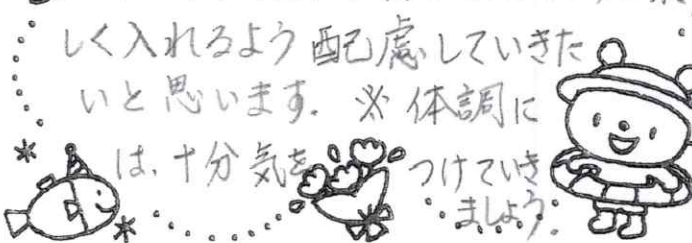 しく入れるよう配慮していきた
いと思います. ※ 体調に
は、十分気をつけていき
ましょう.